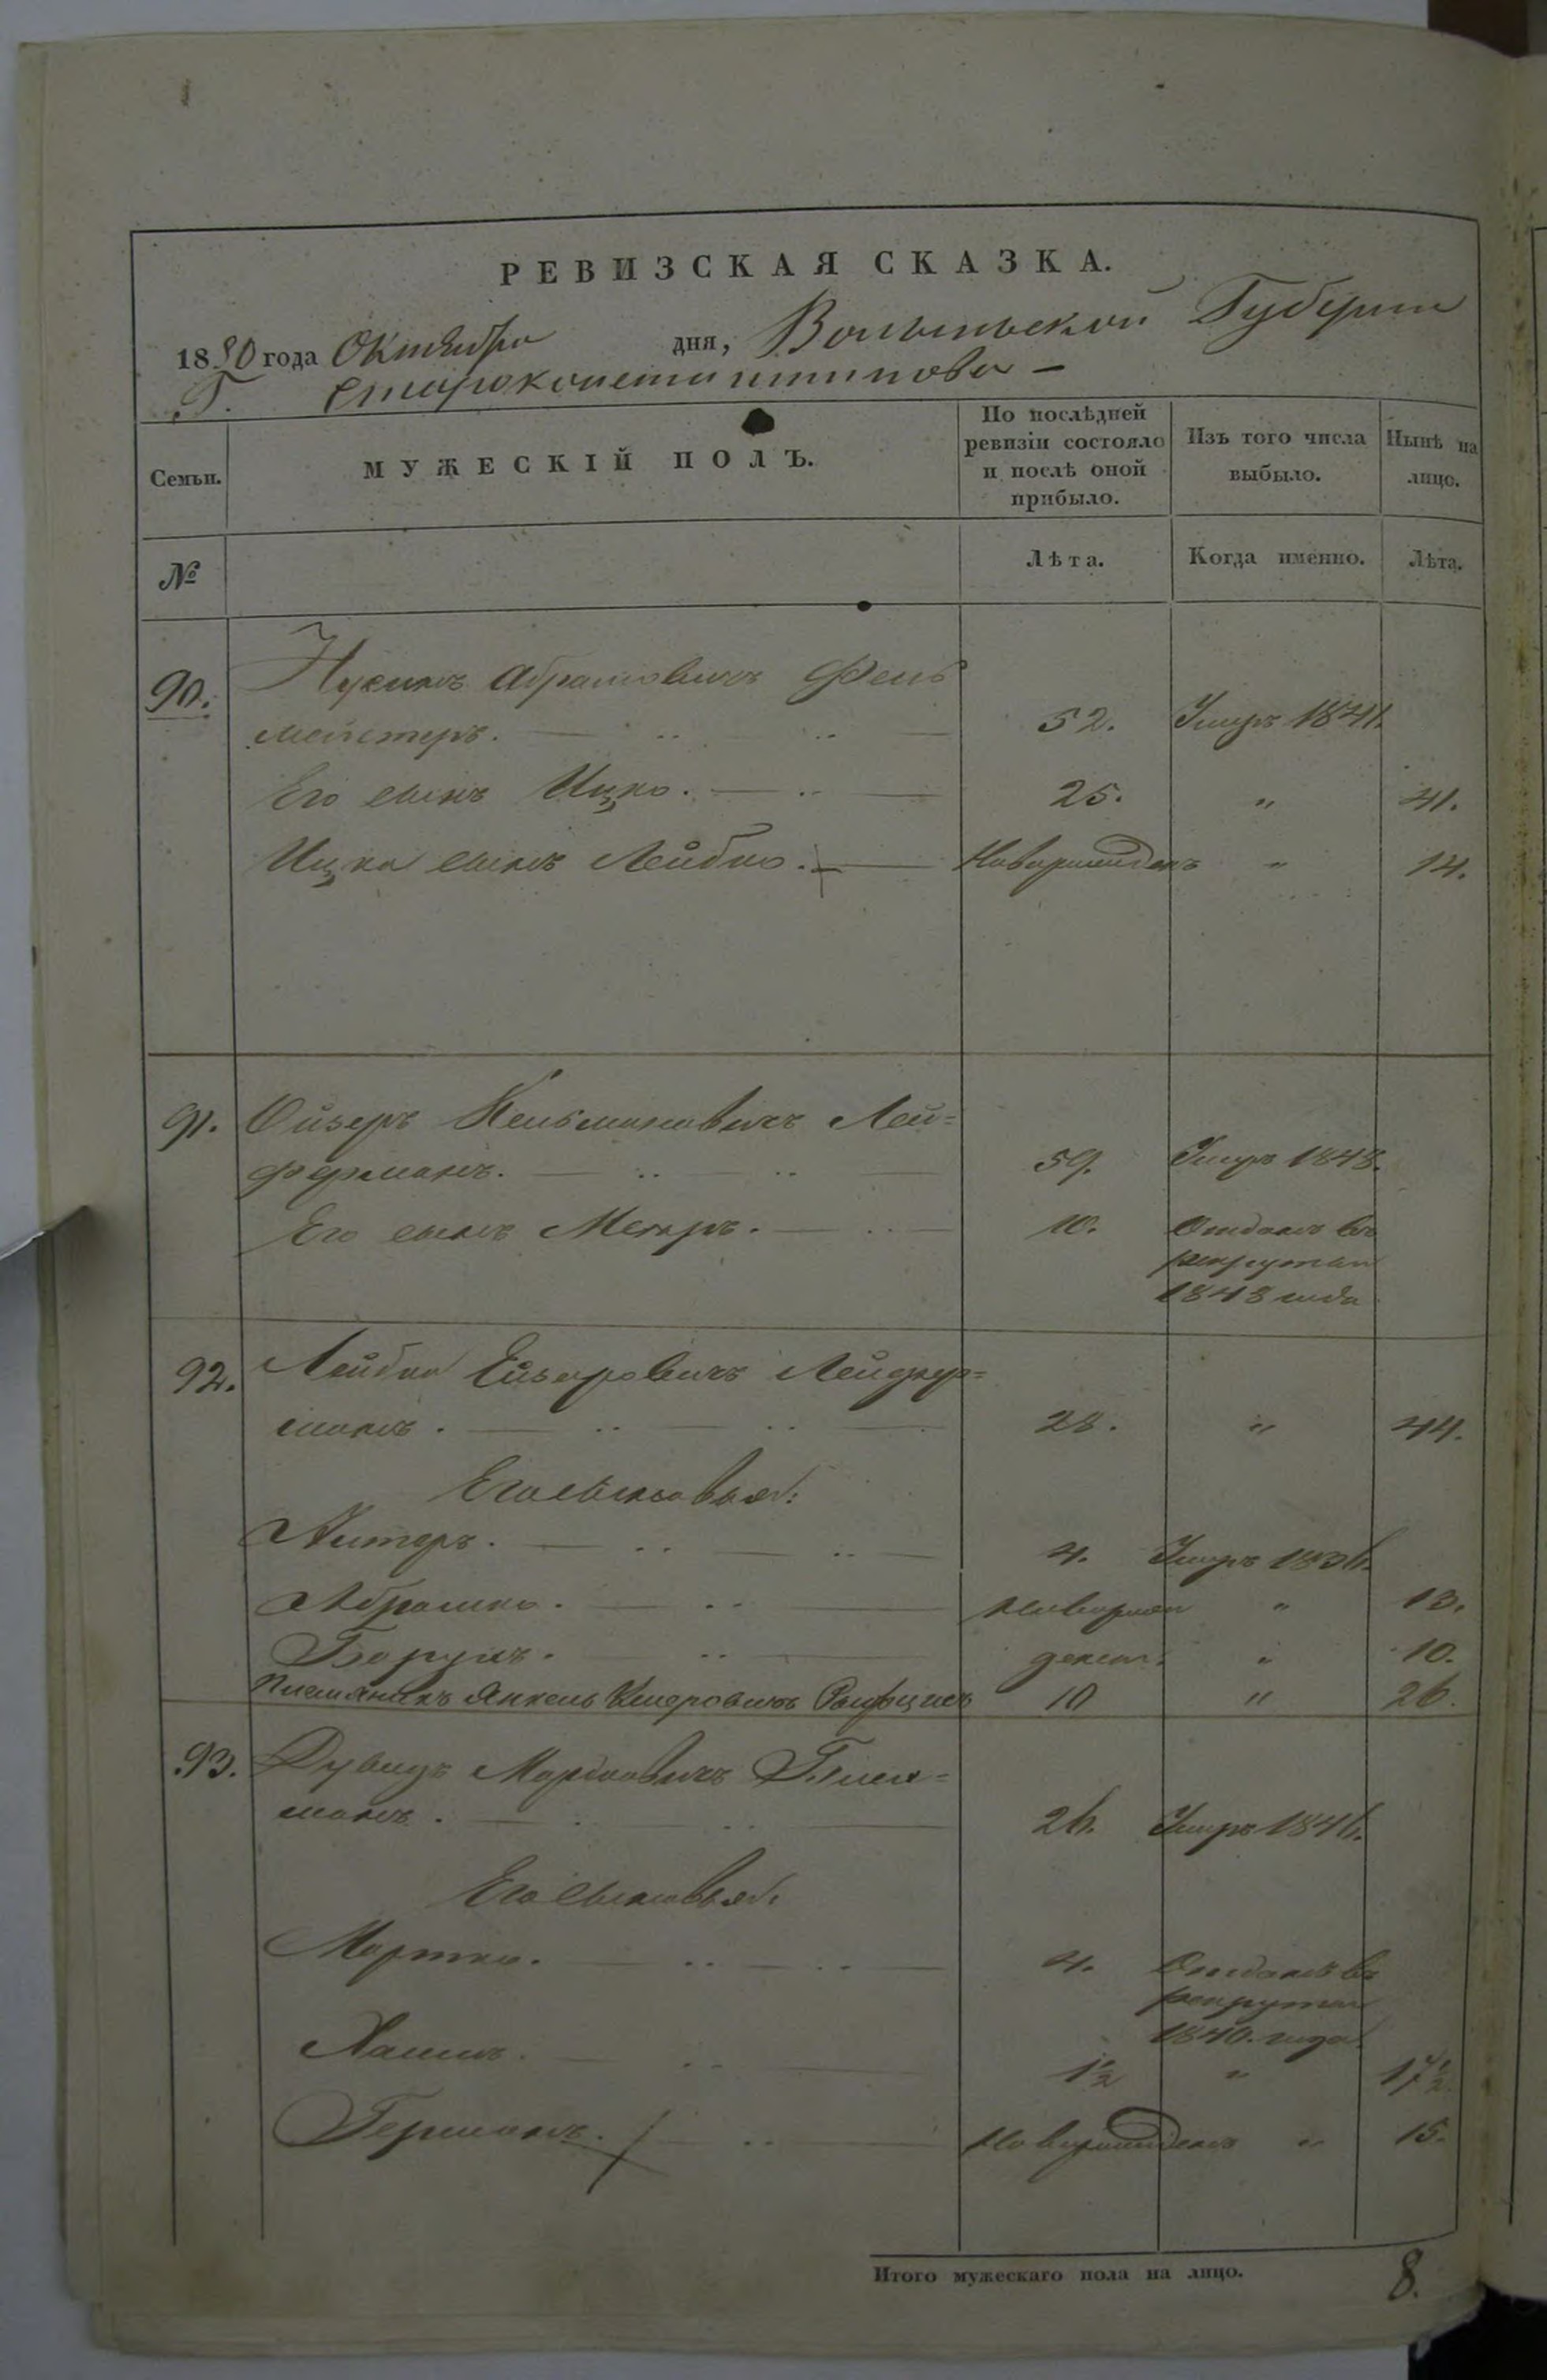 РЕВИЗСКАЯ СКАЗКА.
1850 года Октября дня, Волынской Губернии
Г. Староконстантинова —
Семьи. МУЖЕСКІЙ ПОЛЪ. По послѣдней ревизіи состояло и послѣ оной прибыло. Изъ того числа выбыло. Нынѣ на лицо.
№ Лѣта. Когда именно. Лѣта.
90. Нухимъ Абрамовичъ Фель
мейстеръ. 52. Умеръ 1841.
Его сынъ Ицко. 25. " 41.
Ицка сынъ Лейбко. Новорожденъ " 14.
91. Ойзеръ Кельмановичъ Лей=
ферманъ. 59. Умеръ 1848.
Его сынъ Мееръ. 10. Отданъ въ
рекруты
1848 года
92. Лейбко Ейзеровичъ Лейфер=
манъ. 28. " 44.
Его сыновья:
Алтеръ. 4. Умеръ 1836.
Абрамко. новорож " 13.
Борухъ. дены. " 10.
Племяникъ Янкель 10 " 26.
93. Дувидъ Мордковичъ
манъ. 26. Умеръ 1846.
Его сыновья:
Мортко. 4. Отданъ въ
рекруты
1840. года.
Хаимъ. 1½ " 17½
Германъ. Новорожденъ " 15.
Итого мужескаго пола на лицо. 8.